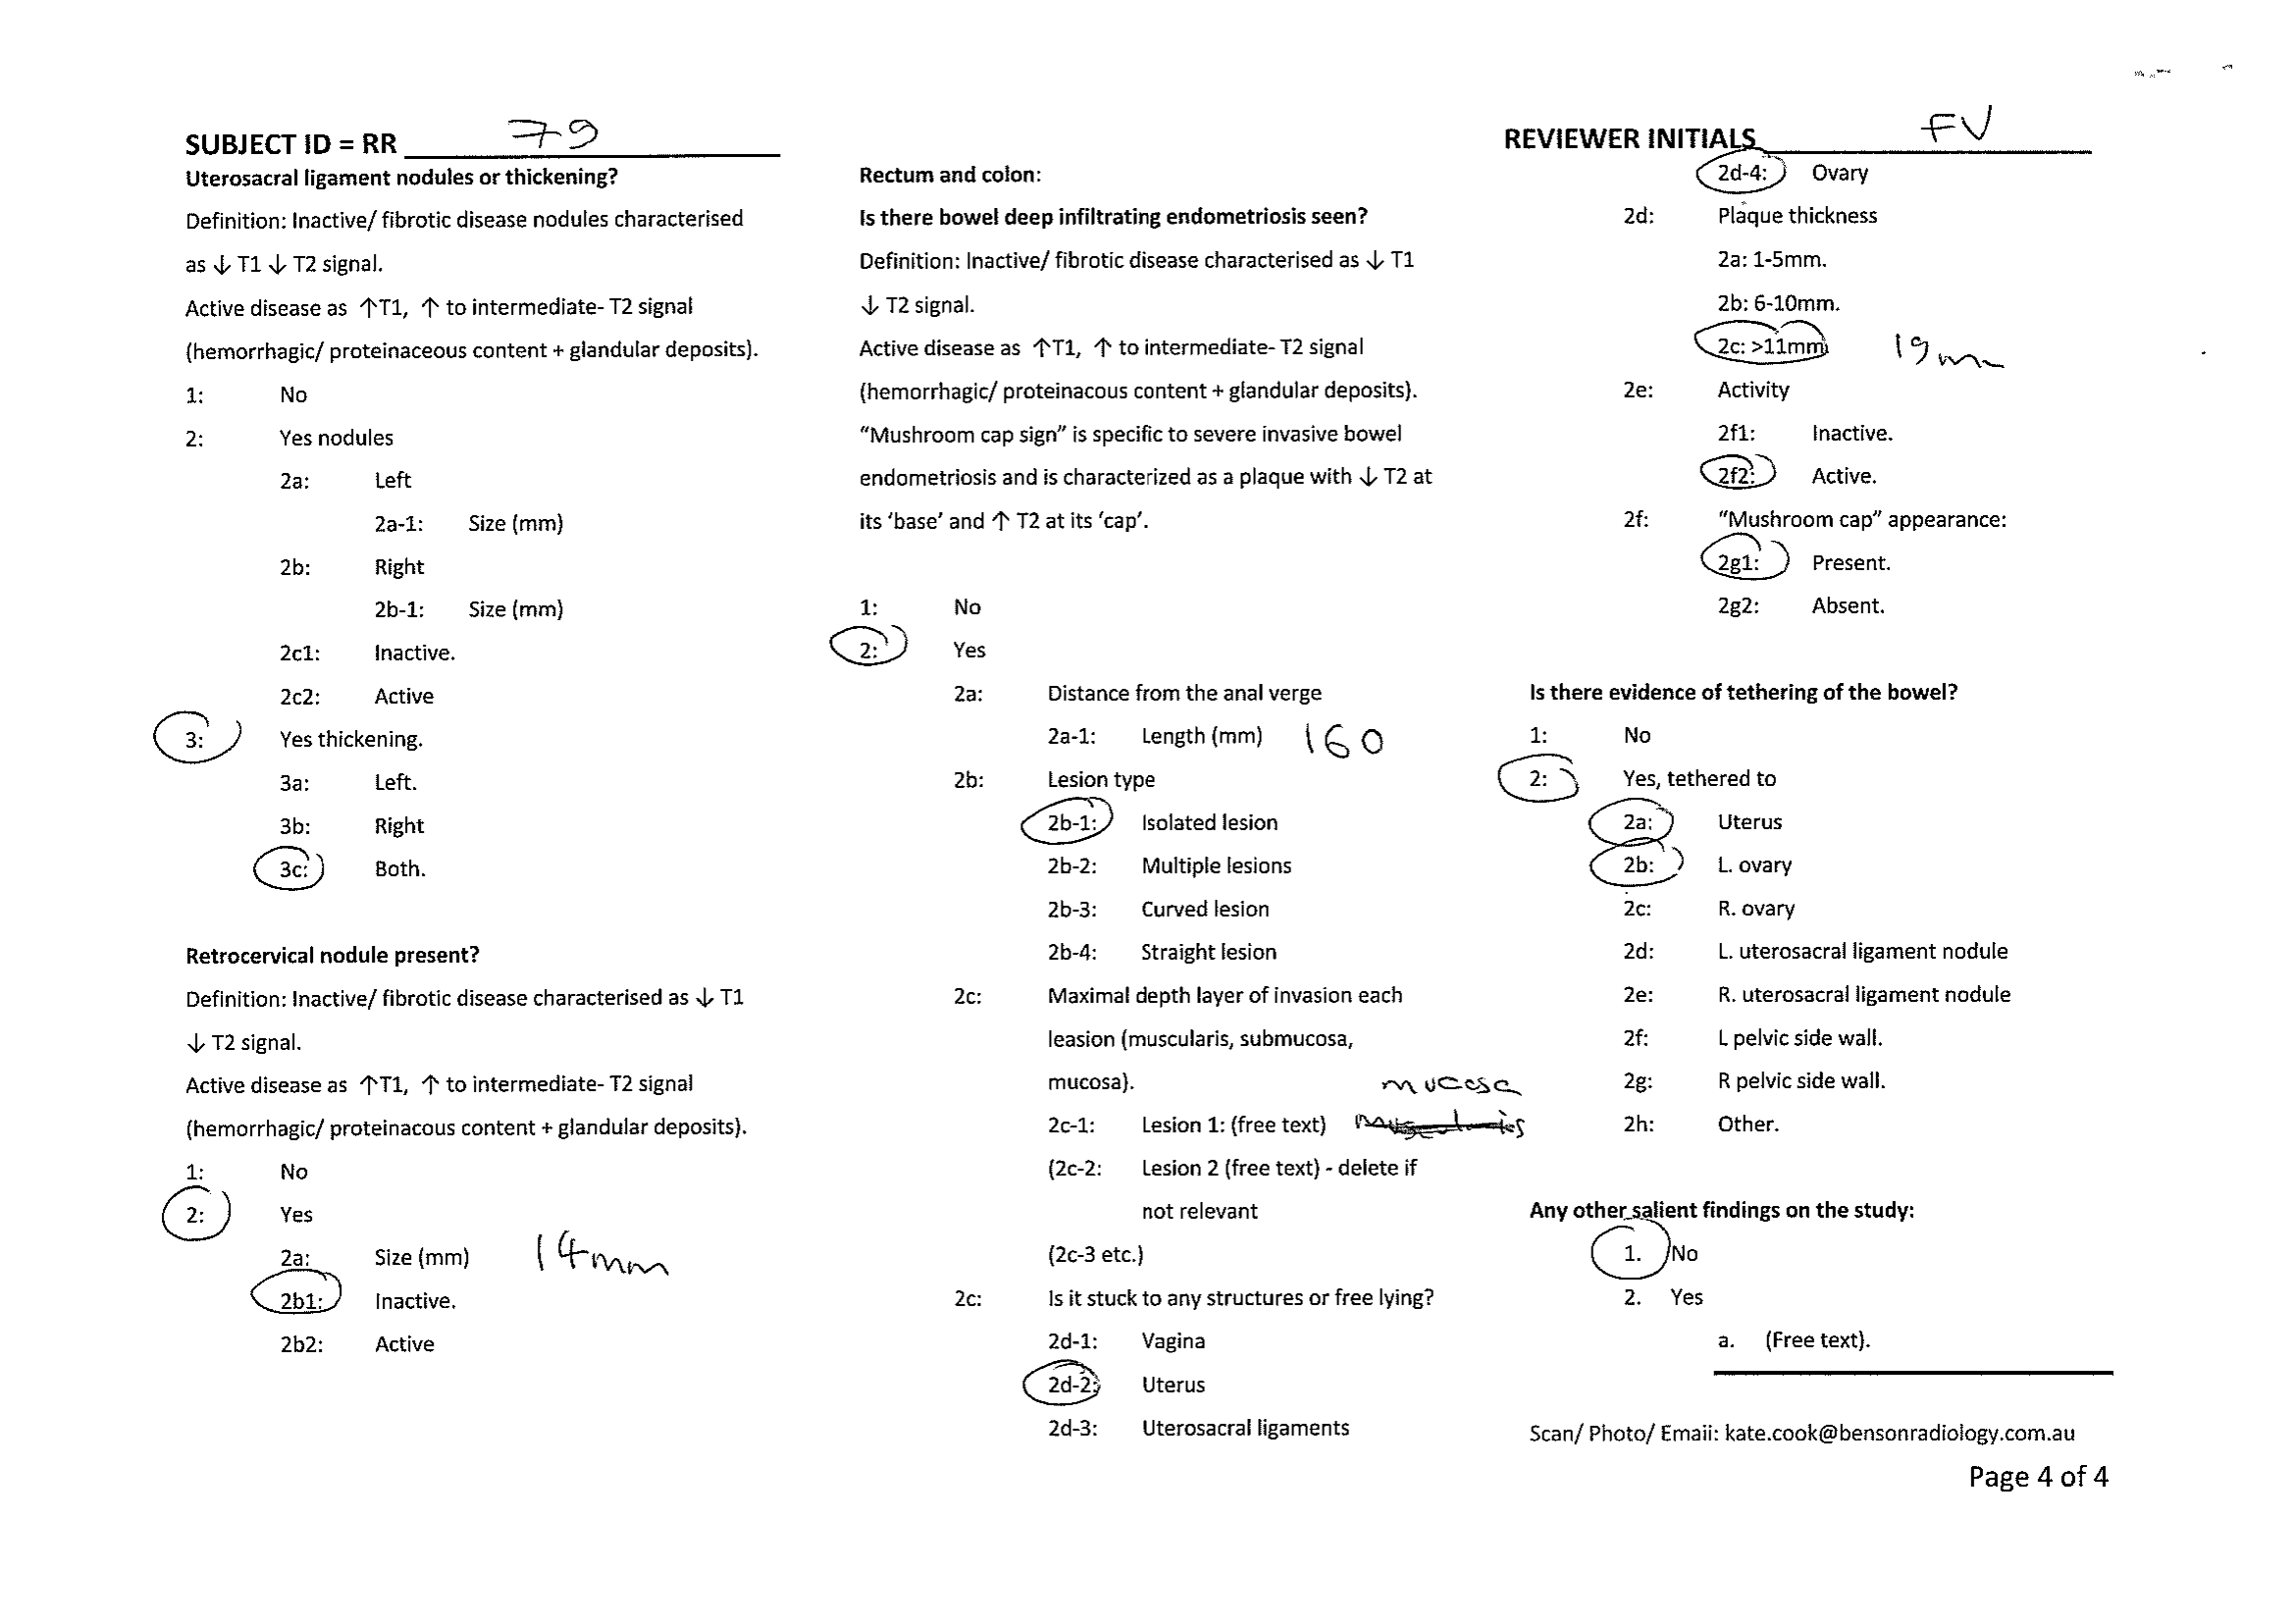 SUBJECT ID = RR 79
Uterosacral ligament nodules or thickening?
Definition: Inactive/ fibrotic disease nodules characterised
as ↓ T1 ↓ T2 signal.
Active disease as ↑T1, ↑ to intermediate- T2 signal
(hemorrhagic/ proteinaceous content + glandular deposits).
1: No
2: Yes nodules
2a: Left
2a-1: Size (mm)
2b: Right
2b-1: Size (mm)
2c1: Inactive.
2c2: Active
3: Yes thickening.
3a: Left.
3b: Right
3c: Both.
Retrocervical nodule present?
Definition: Inactive/ fibrotic disease characterised as ↓ T1
↓ T2 signal.
Active disease as ↑T1, ↑ to intermediate- T2 signal
(hemorrhagic/ proteinacous content + glandular deposits).
1: No
2: Yes
2a: Size (mm) 14mm
2b1: Inactive.
2b2: Active
Rectum and colon:
Is there bowel deep infiltrating endometriosis seen?
Definition: Inactive/ fibrotic disease characterised as ↓ T1
↓ T2 signal.
Active disease as ↑T1, ↑ to intermediate- T2 signal
(hemorrhagic/ proteinacous content + glandular deposits).
“Mushroom cap sign” is specific to severe invasive bowel
endometriosis and is characterized as a plaque with ↓ T2 at
its ‘base’ and ↑ T2 at its ‘cap’.
1: No
2: Yes
2a: Distance from the anal verge
2a-1: Length (mm) 160
2b: Lesion type
2b-1: Isolated lesion
2b-2: Multiple lesions
2b-3: Curved lesion
2b-4: Straight lesion
2c: Maximal depth layer of invasion each
leasion (muscularis, submucosa,
mucosa). mucosa
2c-1: Lesion 1: (free text)
(2c-2: Lesion 2 (free text) - delete if
not relevant
(2c-3 etc.)
2c: Is it stuck to any structures or free lying?
2d-1: Vagina
2d-2: Uterus
2d-3: Uterosacral ligaments
REVIEWER INITIALS FV
2d-4: Ovary
2d: Plaque thickness
2a: 1-5mm.
2b: 6-10mm.
2c: >11mm 19mm
2e: Activity
2f1: Inactive.
2f2: Active.
2f: “Mushroom cap” appearance:
2g1: Present.
2g2: Absent.
Is there evidence of tethering of the bowel?
1: No
2: Yes, tethered to
2a: Uterus
2b: L. ovary
2c: R. ovary
2d: L. uterosacral ligament nodule
2e: R. uterosacral ligament nodule
2f: L pelvic side wall.
2g: R pelvic side wall.
2h: Other.
Any other salient findings on the study:
1. No
2. Yes
a. (Free text).
Scan/ Photo/ Email: kate.cook@bensonradiology.com.au
Page 4 of 4